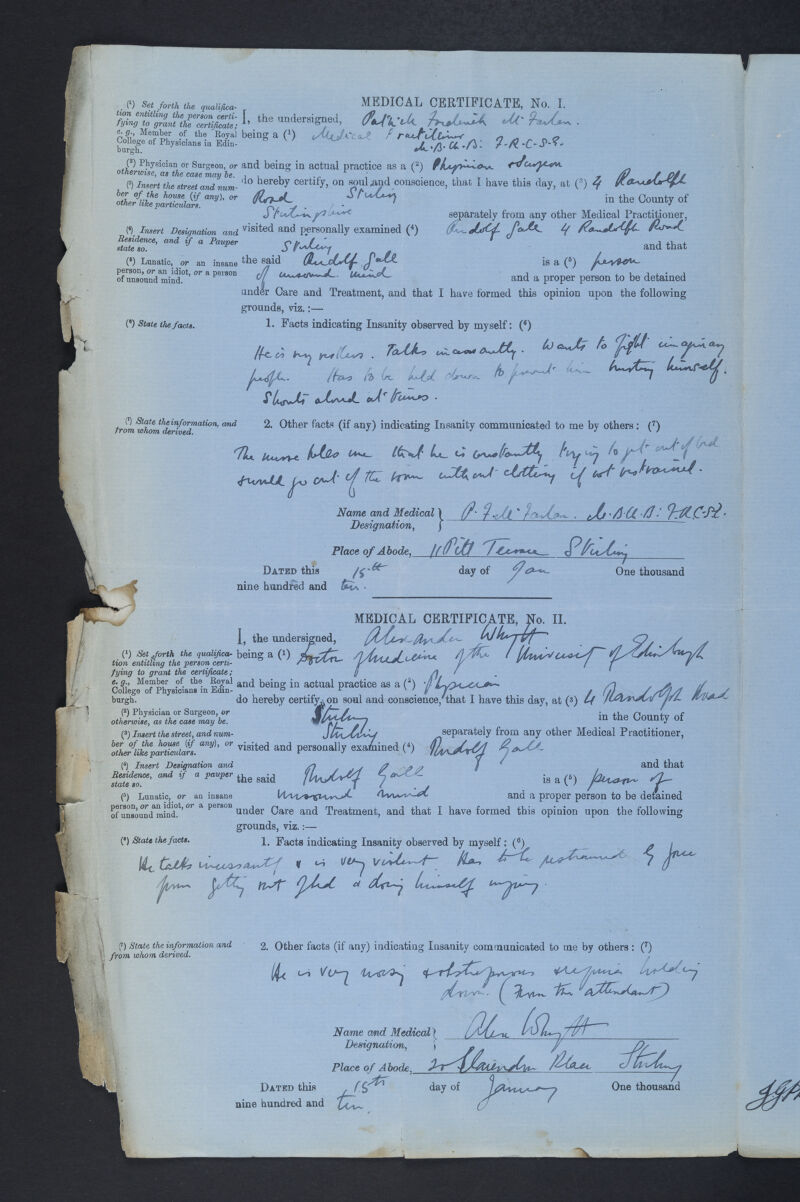 MEDICAL CERTIFICATE, No. I.
(1) Set forth the qualifica-
tion entitling the person certi-
fying to grant the certificate;
e.g., Member of the Royal
College of Physicians in Edin-
burgh.
I, the undersigned, Patrick Frederick McFarlan.
being a (1) Medical Practitioner
M.B.Ch.B: F.R.C.S.E.
(2) Physician or Surgeon, or
otherwise, as the case may be.
and being in actual practice as a (2) Physician & Surgeon
(3) Insert the street and num-
ber of the house (if any), or
other like particulars.
do hereby certify, on soul and conscience, that I have this day, at (3) 4 Randolph
Road Stirling in the County of
Stirlingshire separately from any other Medical Practitioner,
(4) Insert Designation and
Residence, and if a Pauper
state so.
visited and personally examined (4) Rudolf Gall 4 Randolph Road
Stirling and that
(5) Lunatic, or an insane
person, or an idiot, or a person
of unsound mind.
the said Rudolf Gall is a (5) person
of unsound mind and a proper person to be detained
under Care and Treatment, and that I have formed this opinion upon the following
grounds, viz.:—
(6) State the facts.
1. Facts indicating Insanity observed by myself: (6)
He is very restless. Talks incessantly. Wants to fight imaginary
people. Has to be held down to prevent him hurting himself.
Shouts aloud at times.
(7) State the information, and
from whom derived.
2. Other facts (if any) indicating Insanity communicated to me by others: (7)
The nurse tells me that he is constantly trying to get out of bed
& would go out of the room without clothing if not restrained.
Name and Medical Designation, P. F. McFarlan. M.B.Ch.B: F.R.C.S.E.
Place of Abode, 11 Pitt Terrace Stirling
DATED this 15th day of Jan One thousand
nine hundred and ten.
MEDICAL CERTIFICATE, No. II.
I, the undersigned, Alexander Whyte
(1) Set forth the qualifica-
tion entitling the person certi-
fying to grant the certificate;
e.g., Member of the Royal
College of Physicians in Edin-
burgh.
being a (1) Doctor of Medicine of the University of Edinburgh
and being in actual practice as a (2) Physician
do hereby certify, on soul and conscience, that I have this day, at (3) 4 Randolph Road
(2) Physician or Surgeon, or
otherwise, as the case may be.
Stirling in the County of
(3) Insert the street, and num-
ber of the house (if any), or
other like particulars.
Stirling separately from any other Medical Practitioner,
visited and personally examined (4) Rudolf Gall
(4) Insert Designation and
Residence, and if a pauper
state so.
and that
the said Rudolf Gall is a (5) person of
(5) Lunatic, or an insane
person, or an idiot, or a person
of unsound mind.
unsound mind and a proper person to be detained
under Care and Treatment, and that I have formed this opinion upon the following
grounds, viz.:—
(6) State the facts.
1. Facts indicating Insanity observed by myself: (6)
He talks incessantly & is very violent Has to be restrained by force
from getting out of bed & doing himself injury.
(7) State the information and
from whom derived.
2. Other facts (if any) indicating Insanity communicated to me by others: (7)
He is very noisy & obstreperous & requires holding
down. (From the attendant)
Name and Medical Designation, Alex Whyte
Place of Abode, 20 Clarendon Place Stirling
DATED this 15th day of January One thousand
nine hundred and ten.